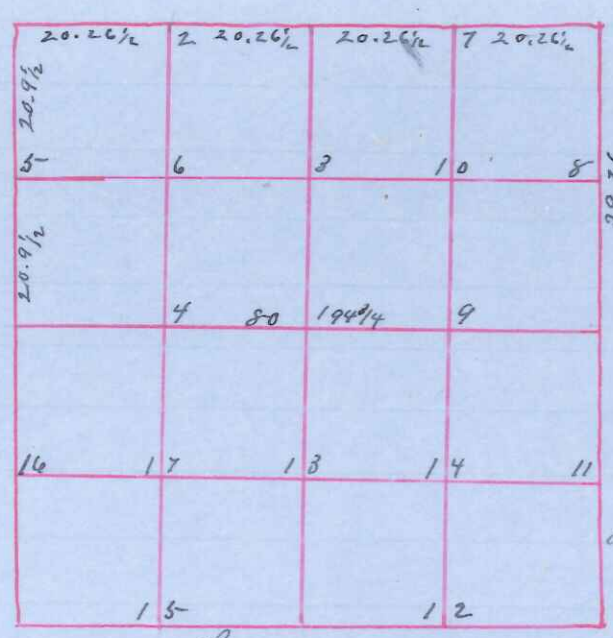 20.26½ 2 20.26½ 20.26½ 7 20.26½
20.9½
5 6 3 10 8
20.9½
4 80 194¾ 9
16 17 13 14 11
15 12